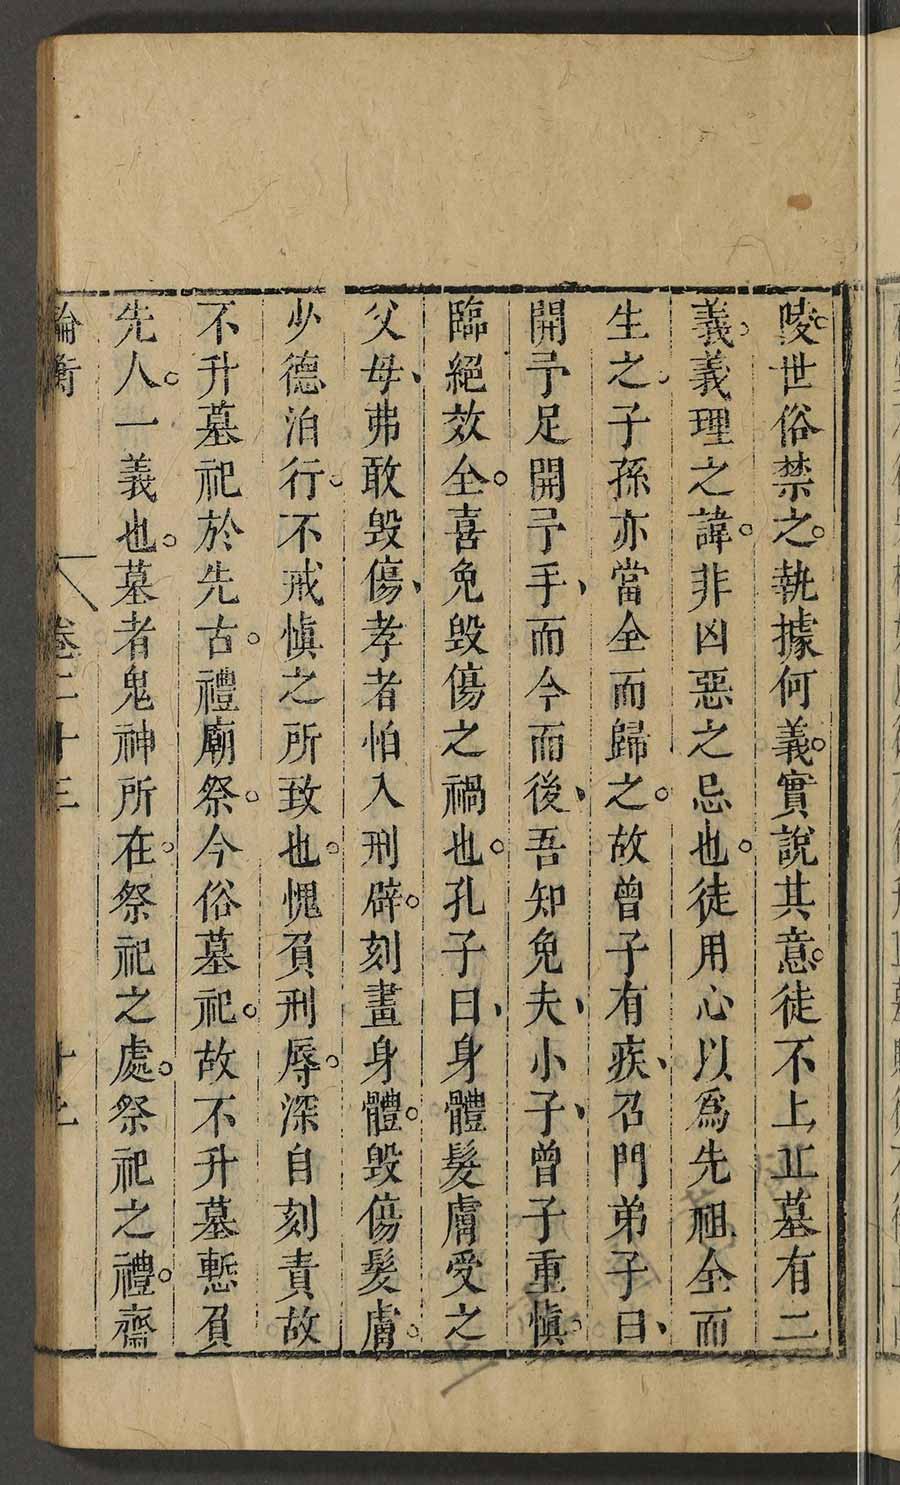 陵。世俗禁之。執據何義。實說其意。徒不上丘墓有二
義。義理之諱。非凶惡之忌也。徒用心以爲先祖全而
生之。子孫亦當全而歸之。故曾子有疾、召門弟子曰、
開予足開予手、而今而後、吾知免夫、小子、曾子重慎。
臨絕效全。喜免毀傷之禍也。孔子曰、身體髮膚受之
父母、弗敢毀傷、孝者怕入刑辟。刻畫身體。毀傷髮膚。
少德泊行。不戒慎之所致也。愧負刑辱。深自刻責故
不升墓祀於先古。禮廟祭。今俗墓祀。故不升墓慙負
先人。一義也。墓者鬼神所在。祭祀之處。祭祀之禮。齋
論衡 卷二十三